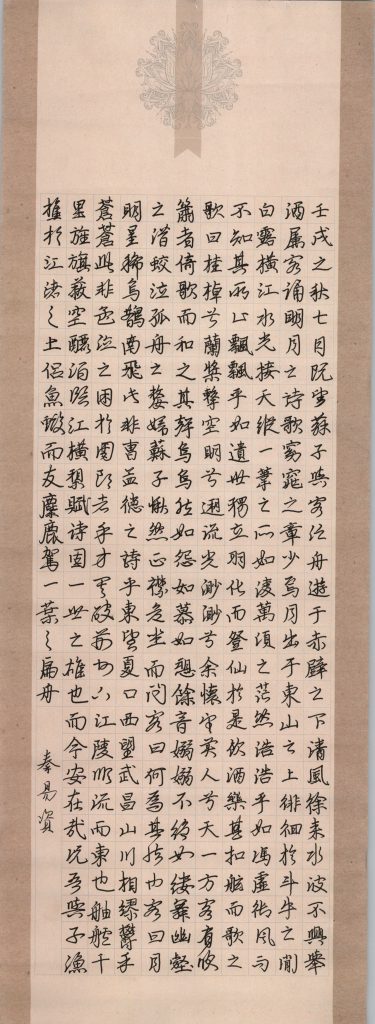 壬戌之秋七月既望蘇子與客泛舟遊于赤壁之下清風徐來水波不興舉
酒屬客誦明月之詩歌窈窕之章少焉月出于東山之上徘徊於斗牛之間
白露橫江水光接天縱一葦之所如淩萬頃之茫然浩浩乎如馮虛御風而
不知其所止飄飄乎如遺世獨立羽化而登仙於是飲酒樂甚扣舷而歌之
歌曰桂棹兮蘭槳擊空明兮遡流光渺渺兮余懷望美人兮天一方客有吹
簫者倚歌而和之其聲烏烏然如怨如慕如愬餘音嫋嫋不絕如縷舞幽壑
之潛蛟泣孤舟之嫠婦蘇子愀然正襟危坐而問客曰何為其然也客曰月
明星稀烏鵲南飛此非曹孟德之詩乎東望夏口西望武昌山川相繆鬱乎
蒼蒼此非孟德之困於周郎者乎方其破荊州下江陵順流而東也舳艫千
里旌旗蔽空釃酒臨江橫槊賦詩固一世之雄也而今安在哉況吾與子漁
樵於江渚之上侶魚蝦而友麋鹿駕一葉之扁舟
秦易資